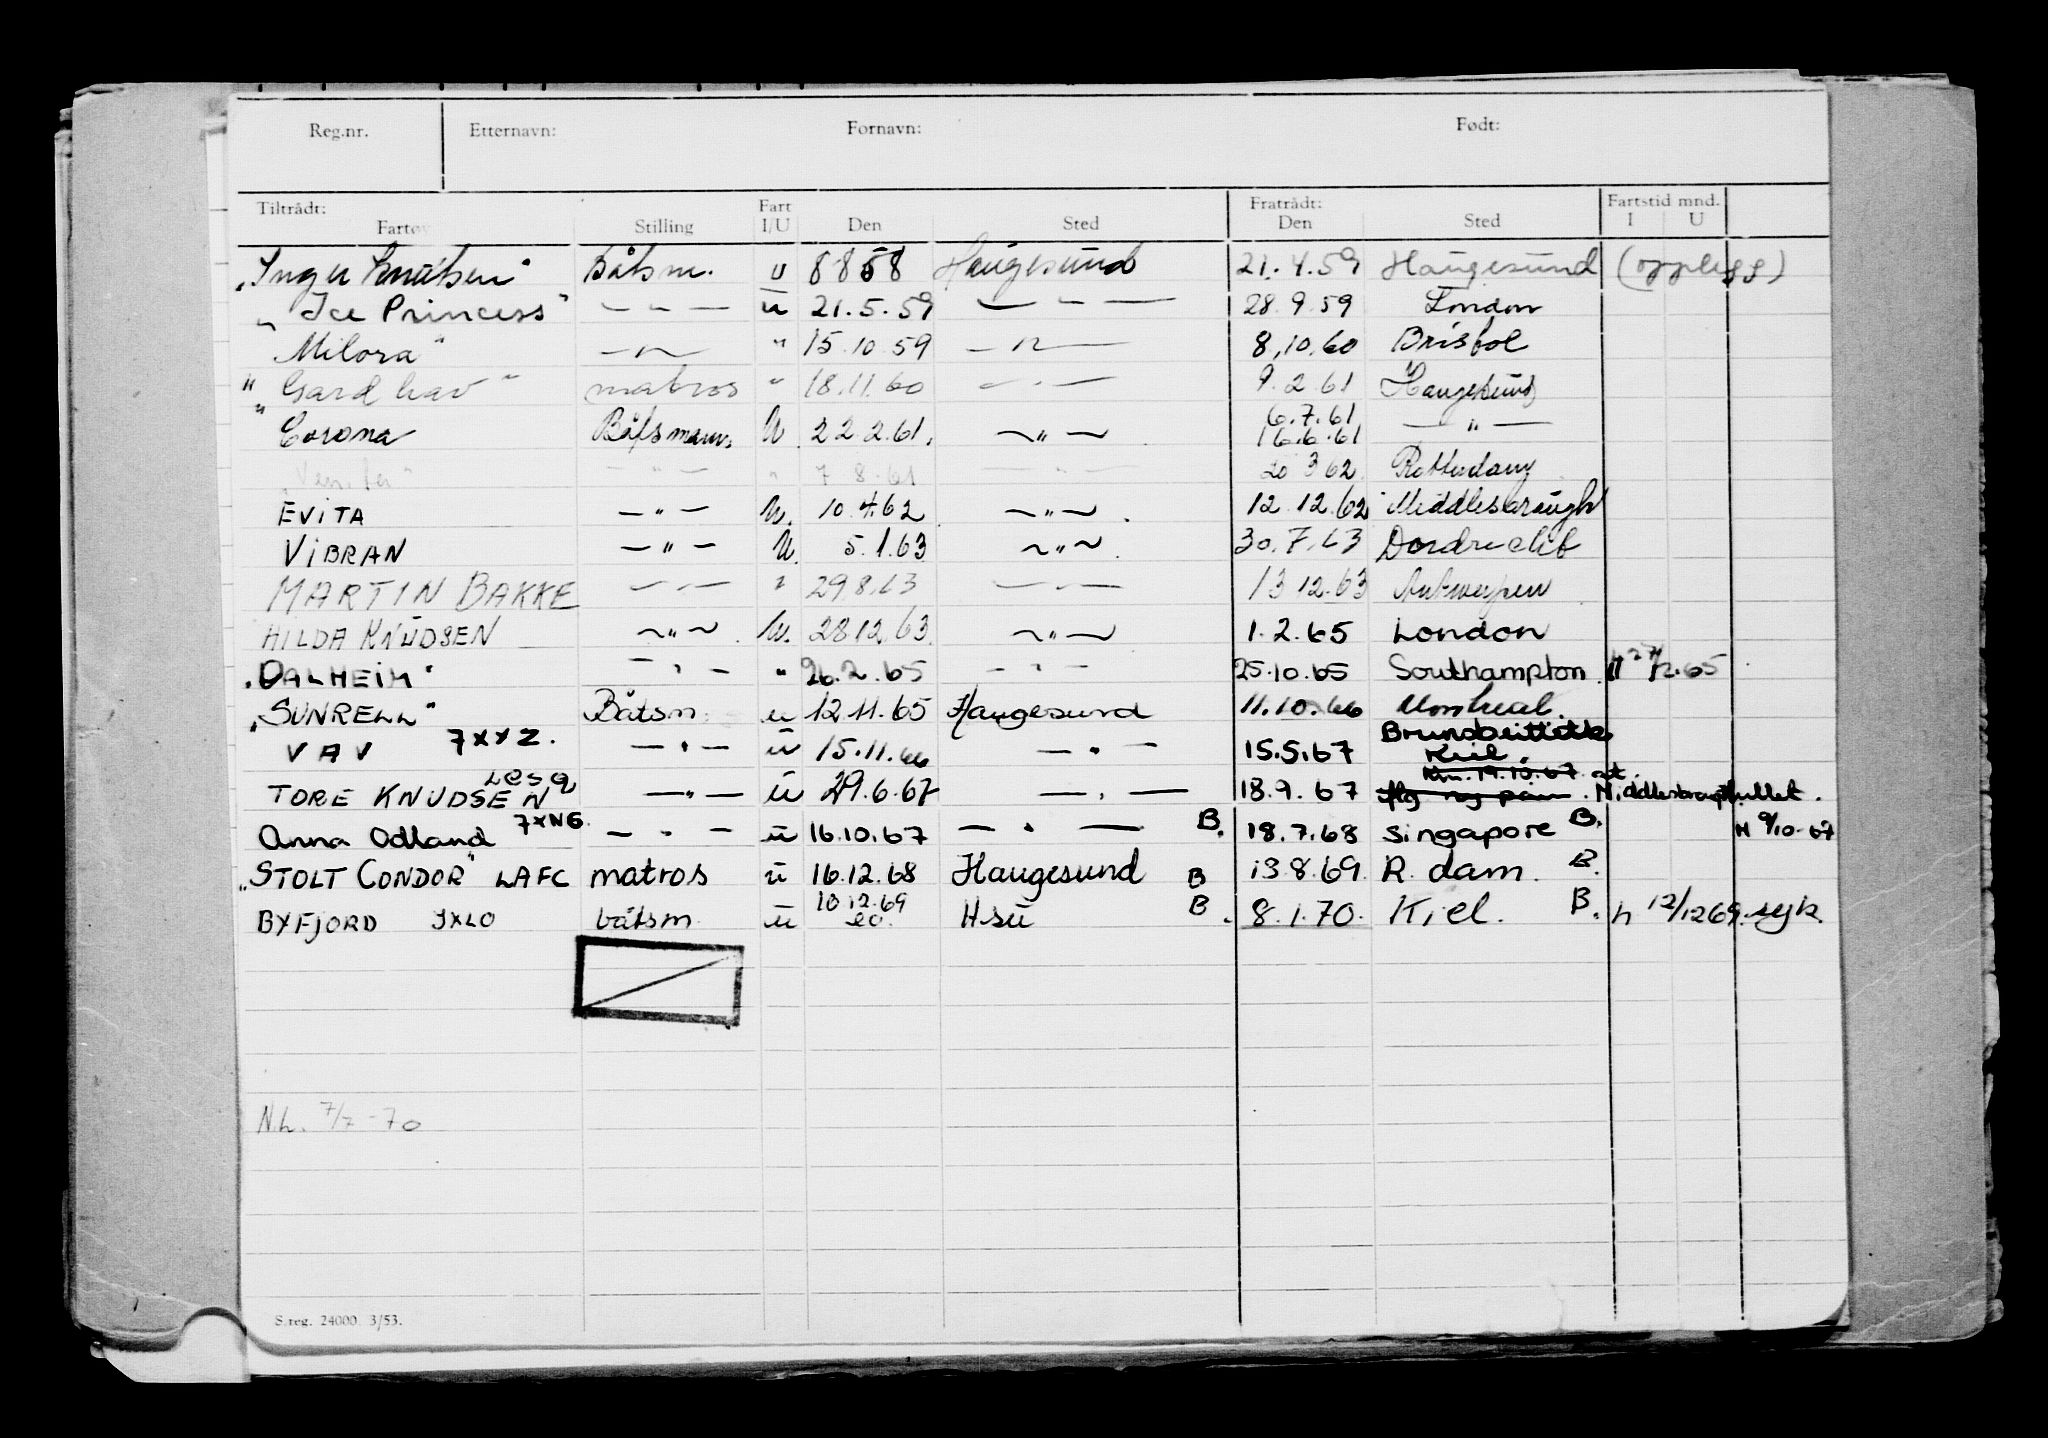 Reg.nr. Etternavn: Fornavn: Født:
Tiltrådt: Fart Fratrådt: Fartstid mnd.
Fartøy Stilling I/U Den Sted Den Sted I U
"Inger Knutsen" Båtsm. u 8 8 58 Haugesund 21.4.59 Haugesund (opplegg)
"Ice Princess" — — — u 21.5.59 — " — 28.9.59 London
"Milora" — " — " 15.10.59 — " — 8.10.60 Bristol
"Gard hav" matros " 18.11.60 — " — 9.2.61 Haugesund
6.7.61
"Corona Båtsmann U 22.2.61. — " — 16.6.61 — " —
— " — " 7 8.61 — " — 20 3 62 Rotterdam
EVITA — " — U. 10.4.62 — " — . 12.12.62 Middlesbrough
VIBRAN — " — U. 5.1.63 — " — . 30.7.63 Dordrecht
MARTIN BAKKE — " — " 29 8.63 — " — 13 12.63 Antwerpen
HILDA KNUDSEN — " — . U. 28 12 63 — " — 1.2.65 London
"DALHEIM" — " — " 26.2.65 — " — 25.10.65 Southampton
"SUNRELL" Båtsm. u 12 11.65 Haugesund 11.10.66 Montreal.
VAV 7XYZ. — " — u 15.11.66 — " — 15.5.67 Kiel.
TORE KNUDSEN — " — u 29.6.67 — " — 18.9.67
Anna Odland 7XNG. — " — u 16.10.67 — " — B. 18.7.68 Singapore B. H 9/10-67
"STOLT CONDOR" LAFC matros u 16.12.68 Haugesund B 13.8.69. R.dam. B.
10 12.69
BYFJORD JXLO båtsm u 20. Hsu B. 8.1.70. Kiel. B. h 12/12 69. syk.
N.L. 7/7-70
S.reg. 24000. 3/53.